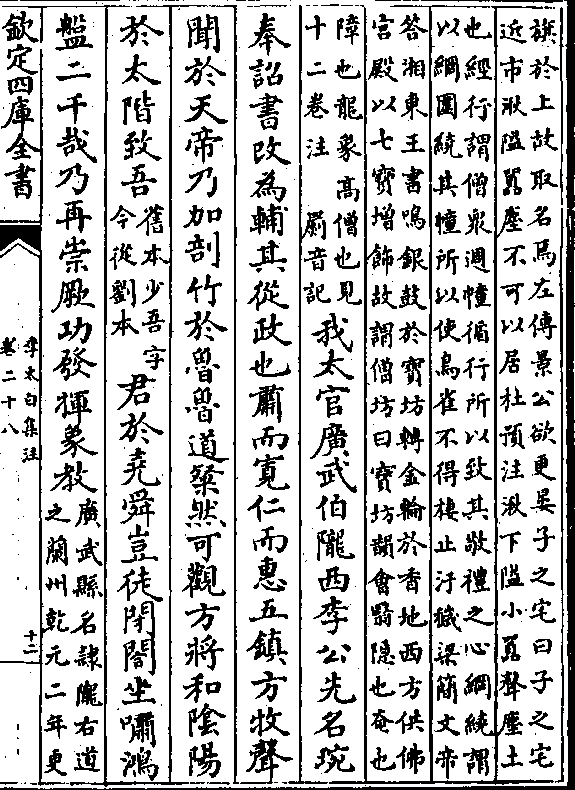 旗於上故取名焉左傳景公欲更晏子之宅曰子之宅
近市湫隘囂塵不可以居杜預注湫下隘小囂聲塵土
也經行謂僧衆週幢循行所以致其敬禮之心網繞謂
以網圍繞其幢所以使鳥雀不得棲止汙穢梁簡文帝
荅湘東王書鳴銀鼓於寶坊轉金輪於香地西方供佛
宮殿以七寶增飾故謂僧坊曰寶坊韻會翳隱也奄也
障也龍象高僧也見
十二卷注　屭音記
我太官廣武伯隴西李公先名琬
奉詔書改為輔其從政也肅而寬仁而惠五鎮方牧聲
聞於天帝乃加剖竹於魯魯道粲然可觀方將和陰陽
於太階致吾
舊本少吾字
今從劉本
君於堯舜豈徒閉閤坐嘯鴻
盤二千哉乃再崇厥功發揮象教
廣武縣名隷隴右道
之蘭州乾元二年更
欽定四庫全書
李太白集注
卷二十八
十二